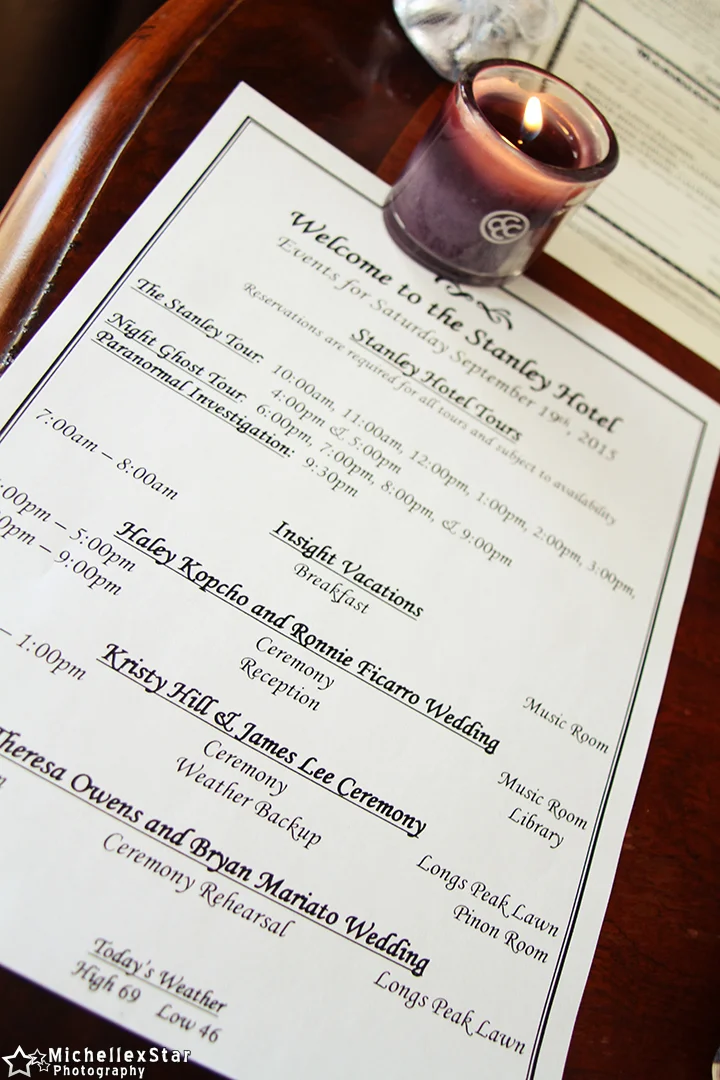 Welcome to the Stanley Hotel
Events for Saturday September 19th, 2015
Stanley Hotel Tours
Reservations are required for all tours and subject to availability
The Stanley Tour: 10:00am, 11:00am, 12:00pm, 1:00pm, 2:00pm, 3:00pm,
4:00pm & 5:00pm
Night Ghost Tour: 6:00pm, 7:00pm, 8:00pm, & 9:00pm
Paranormal Investigation: 9:30pm
Insight Vacations
7:00am – 8:00am Breakfast Music Room
Haley Kopcho and Ronnie Ficarro Wedding
:00pm – 5:00pm Ceremony Music Room
0pm – 9:00pm Reception Library
Kristy Hill & James Lee Ceremony
– 1:00pm Ceremony Longs Peak Lawn
Weather Backup Pinon Room
Theresa Owens and Bryan Mariato Wedding
Ceremony Rehearsal Longs Peak Lawn
Today's Weather
High 69 Low 46
MichellexStar
Photography